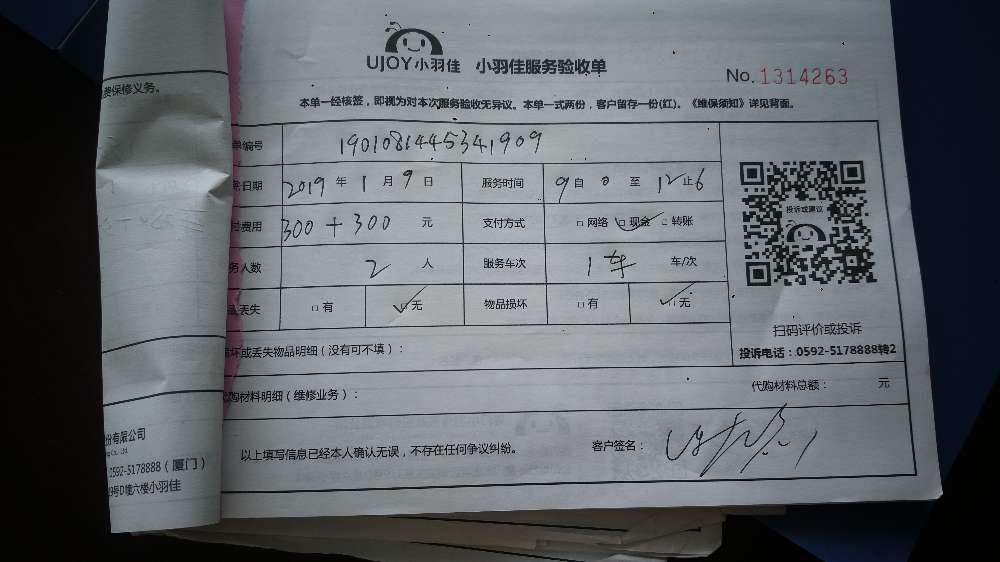 UJOY小羽佳 小羽佳服务验收单
No. 1314263
本单一经核签，即视为对本次服务验收无异议。本单一式两份，客户留存一份(红)。《维保须知》详见背面。
单编号 1901081445341909
日期 2019 年 1 月 9 日 服务时间 9 自 0 至 12 止
费用 300 + 300 元 支付方式 □ 网络 ☑ 现金 □ 转账
务人数 2 人 服务车次 1 车 车/次
丢失 □ 有 ☑ 无 物品损坏 □ 有 ☑ 无
坏或丢失物品明细（没有可不填）：
代购材料明细（维修业务）： 代购材料总额： 元
以上填写信息已经本人确认无误，不存在任何争议纠纷。 客户签名：
投诉或建议
扫码评价或投诉
投诉电话：0592-5178888转2
费保修义务。
份有限公司
Co., Ltd.
0592-5178888（厦门）
号D幢六楼小羽佳